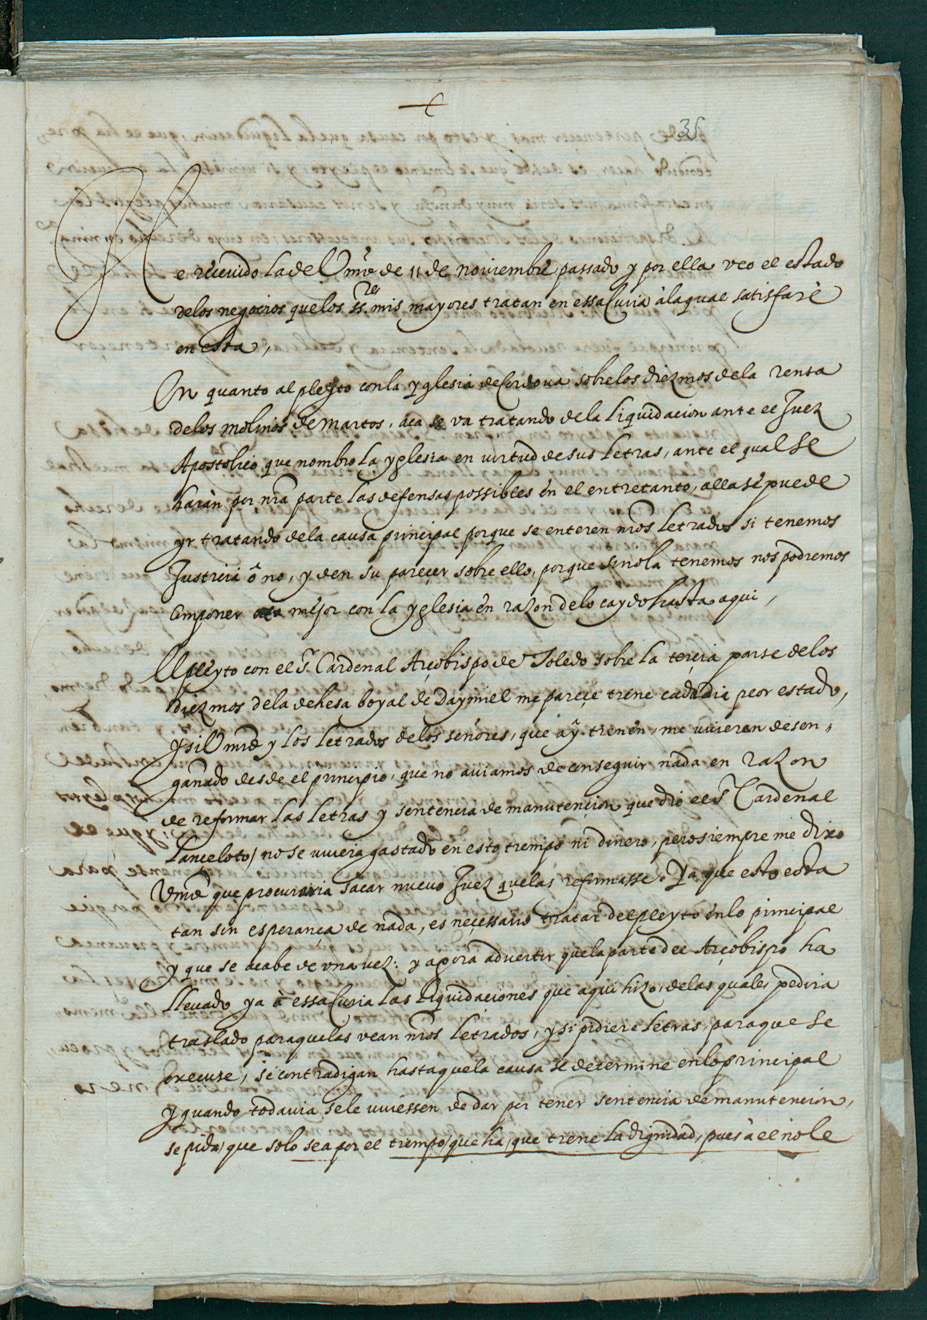 35
He reçeuido la de Vmd de 11 de noviembre passado y por ella veo el estado
delos negocios quelos ss.res mis mayores tratan en essa Curia àlaqual satisfarè
en esta,
En quanto al pleyto conla yglesia de Cordoua sobrelos diezmos dela renta
delos molinos de Martos, aca se va tratando dela liquidacion ante el Juez
Apostolico que nombro la yglesia en virtud de sus letras, ante el qual se
haràn por nra parte las defensas possibles en el entretanto, alla se puede
yr tratando dela causa principal porque se enteren nros letrados si tenemos
Justicia ô no, y den su pareçer sobre ello, porque sinola tenemos nos podremos
componer aca mejor con la yglesia en razon delo caydo hasta aqui,
El pleyto con el S.r Cardenal Arçobispo de Toledo sobre la tercia parte delos
diezmos dela dehesa boyal de Daymiel me pareçe tiene cadadia peor estado,
y si Vmd y los letrados delos señores, que aý tienen, me uuieran desen,
gañado desde el principio, que no auiamos de conseguir nada en razon
de reformar las letras y sentencia de manutençion que dio el S.r Cardenal
Lançeloto, no se uuiera gastado en esto tiempo ni dinero, pero siempre me dixo
Vmd que procuraria sacar nueuo Juez quelas reformasse. Ya que esto esta
tan sin esperanca de nada, es neçessario tratar del pleyto enlo principal
y que se acabe de vna vez: y agora aduertir quela parte del Arçobispo ha
lleuado ya a essa Curia las liquidaciones que aqui hizo, delas quales pedira
traslado paraquelas vean nros letrados, y si pidiere letras paraque se
execute, se contradigan hastaquela causa se determine enlo principal
y quando todauia sele uuiessen de dar por tener sentencia de manutencion,
se pida, que solo sea por el tiempo que ha, que tiene la dignidad, pues à el nole